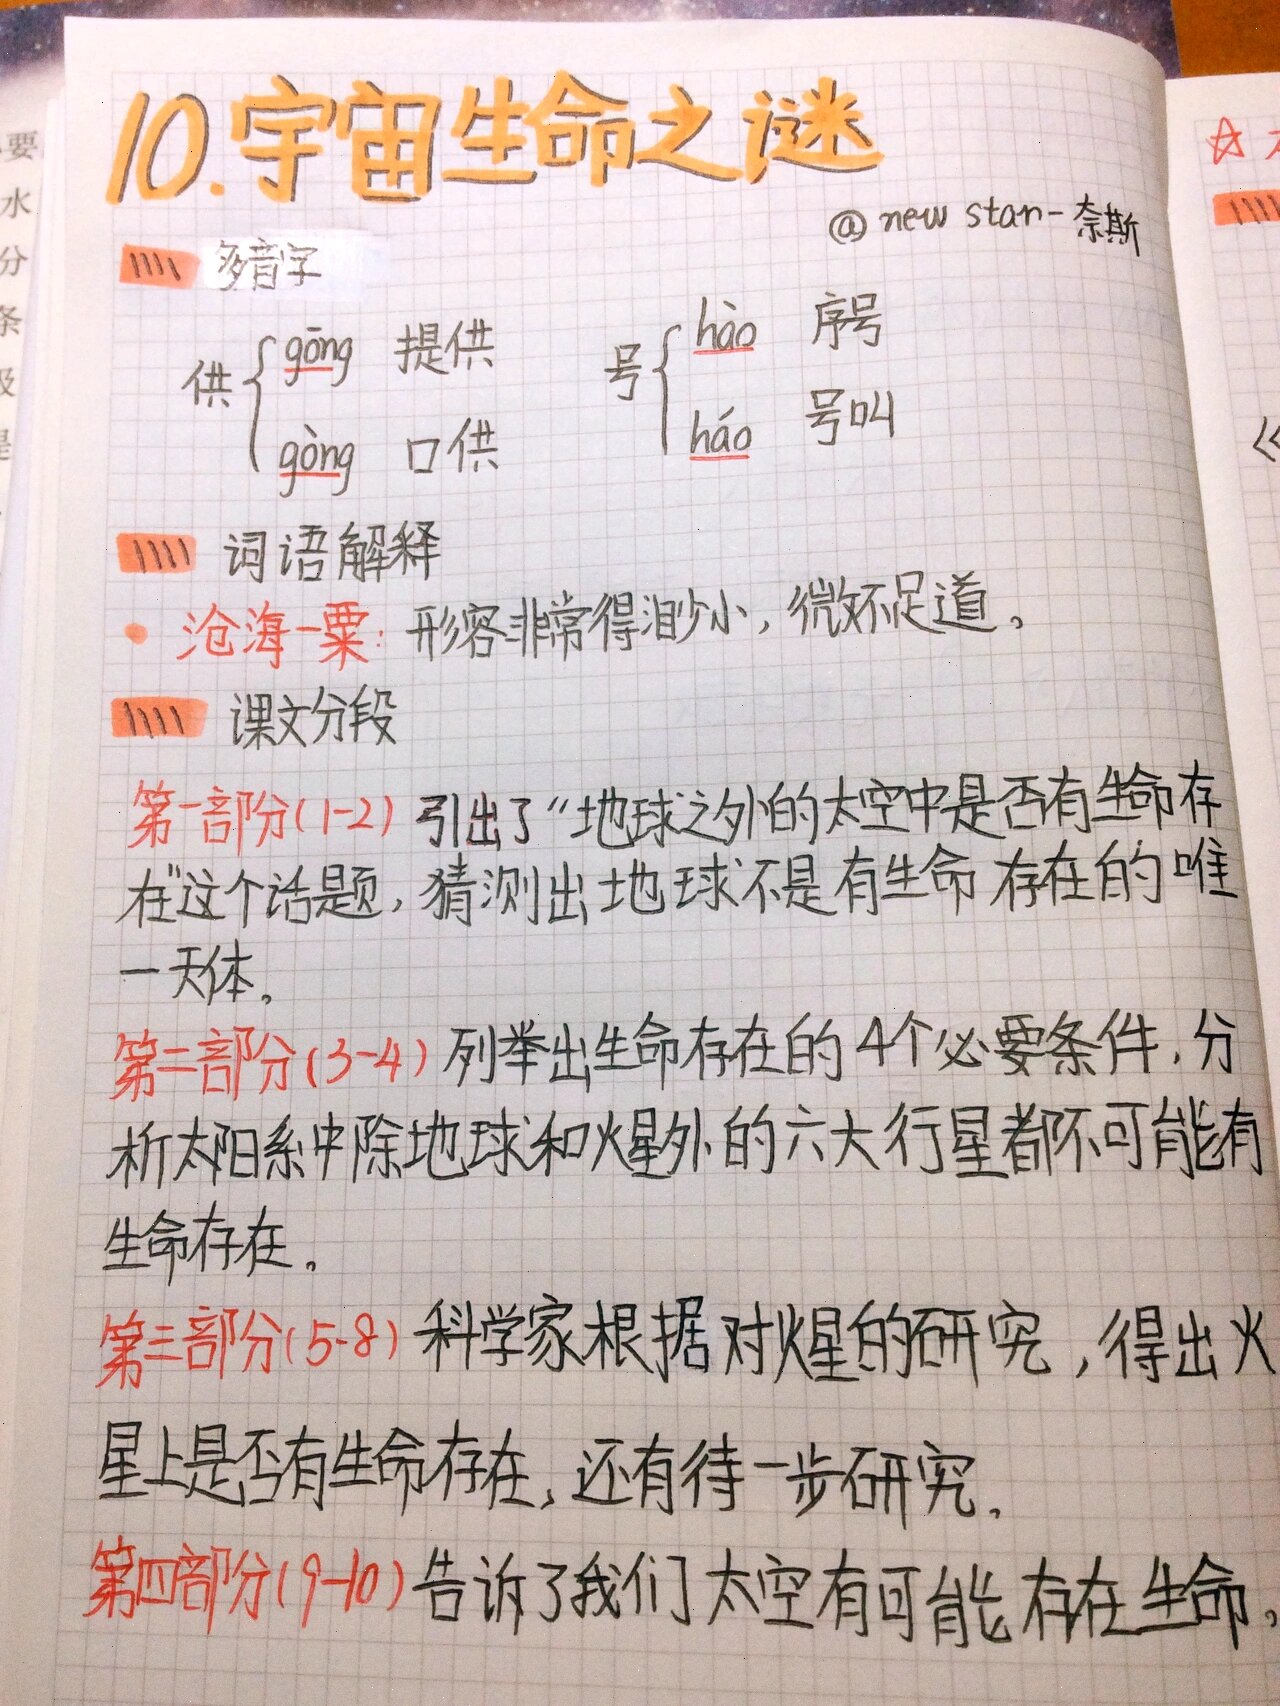 10.宇宙生命之谜
@ new star-奈斯
多音字
供 gōng 提供 号 hào 序号
gòng 口供 háo 号叫
词语解释
沧海一粟：形容非常得渺小，微不足道。
课文分段
第一部分(1-2) 引出了“地球之外的太空中是否有生命存
在”这个话题，猜测出地球不是有生命存在的唯
一天体。
第二部分(3-4) 列举出生命存在的4个必要条件，分
析太阳系中除地球和火星外的六大行星都不可能有
生命存在。
第三部分(5-8) 科学家根据对火星的研究，得出火
星上是否有生命存在，还有待一步研究。
第四部分(9-10) 告诉了我们太空有可能存在生命，
要
水
分
条
级
是